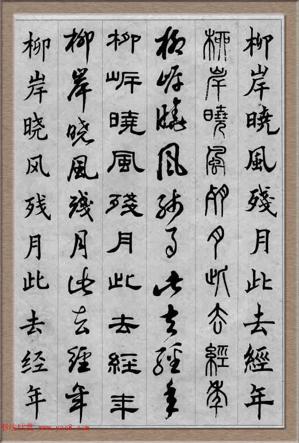 柳岸曉風殘月此去經年
柳岸曉風殘月此去經年
柳岸曉風殘月此去經年
柳岸曉風殘月此去經年
柳岸曉風殘月此去經年
柳岸晓风残月此去经年